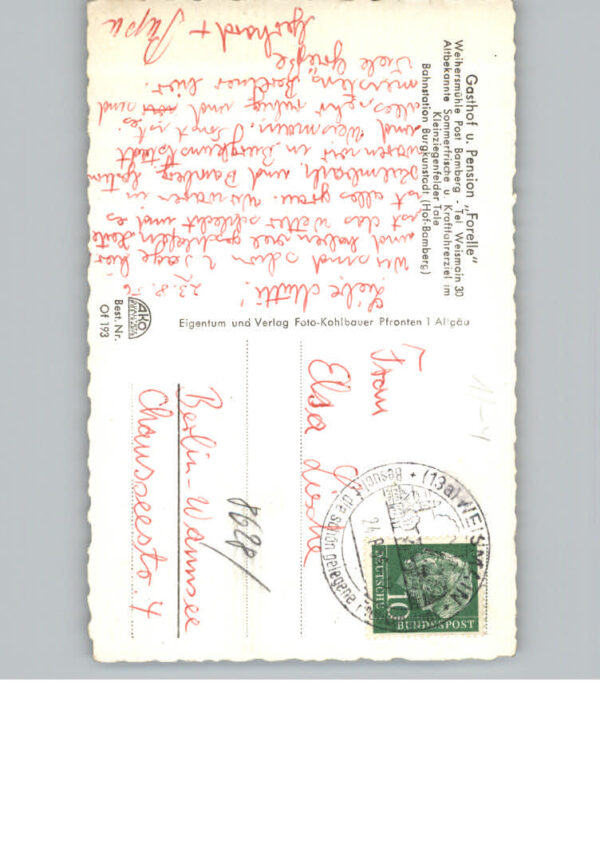 Gasthof u. Pension „Forelle"
Weihersmühle Post Bamberg - Tel. Weismain 30
Altbekannte Sommerfrische u. Kraftfahrerziel im
Kleinziegenfelder Tale
Bahnstation Burgkunstadt (Hof-Bamberg)
23.8.56
Liebe Mutti!
Wir sind schon 2 Tage hier
und haben viel geschlafen. Heute
ist das Wetter schlecht und es
ist alles grau. Wir waren in
Kulmbach und Bamberg. Gestern
waren wir in Burgkunstadt
und Weismain. Sonst ist es
alles sehr ruhig und wir sind
meistens Berliner hier.
Viele Grüße
Gerhard + Papa
AKO
Best. Nr.
Of 193
Eigentum und Verlag Foto-Kohlbauer Pfronten 1 Allgäu
Frau
Elsa
Berlin-Wannsee
Chausseestr. 4
(13a) WEISM
Besucht die schön gelegene
24
10
DEUTSCHE
BUNDESPOST